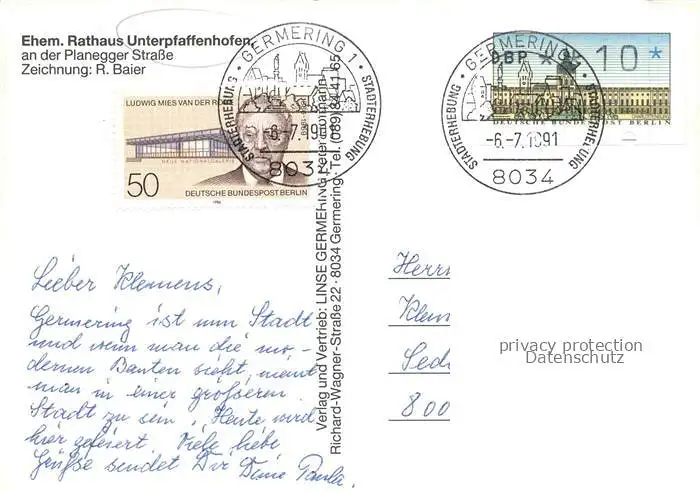 Ehem. Rathaus Unterpfaffenhofen,
an der Planegger Straße
Zeichnung: R. Baier
LUDWIG MIES VAN DER ROHE
NEUE NATIONALGALERIE
50
DEUTSCHE BUNDESPOST BERLIN
1986
GERMERING 1
STADTERHEBUNG
STADTERHEBUNG
-6.-7.1991
8034
DBP
10 *
DEUTSCHE BUNDESPOST BERLIN
GERMERING 1
STADTERHEBUNG
STADTERHEBUNG
-6.-7.1991
8034
Verlag und Vertrieb: LINSE GERMERING
Richard-Wagner-Straße 22 · 8034 Germering · Tel. (089) 84 41 65
Lieber Klemens,
Germering ist nun Stadt
und wenn man die mo-
dernen Bauten sieht, meint
man in einer größeren
Stadt zu sein. Heute wird
hier gefeiert. Viele liebe
Grüße sendet Dir Deine Paula.
Herrn
Klem
Sed
800
privacy protection
Datenschutz